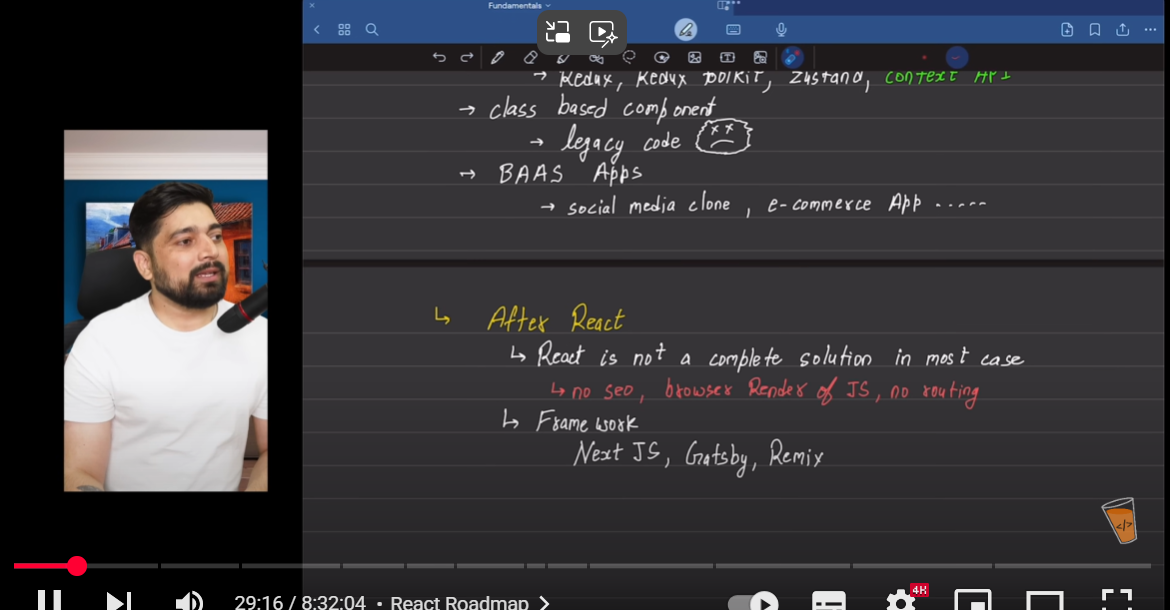 Fundamentals
→ Redux, Redux Toolkit, Zustand, Context API
→ class based component
→ legacy code
↔ BAAS Apps
→ social media clone, e-commerce App .....
↳ After React
↳ React is not a complete solution in most case
↳ no seo, browser Render of JS, no routing
↳ Framework
Next JS, Gatsby, Remix
</>
4K
29:16 / 8:32:04 • React Roadmap